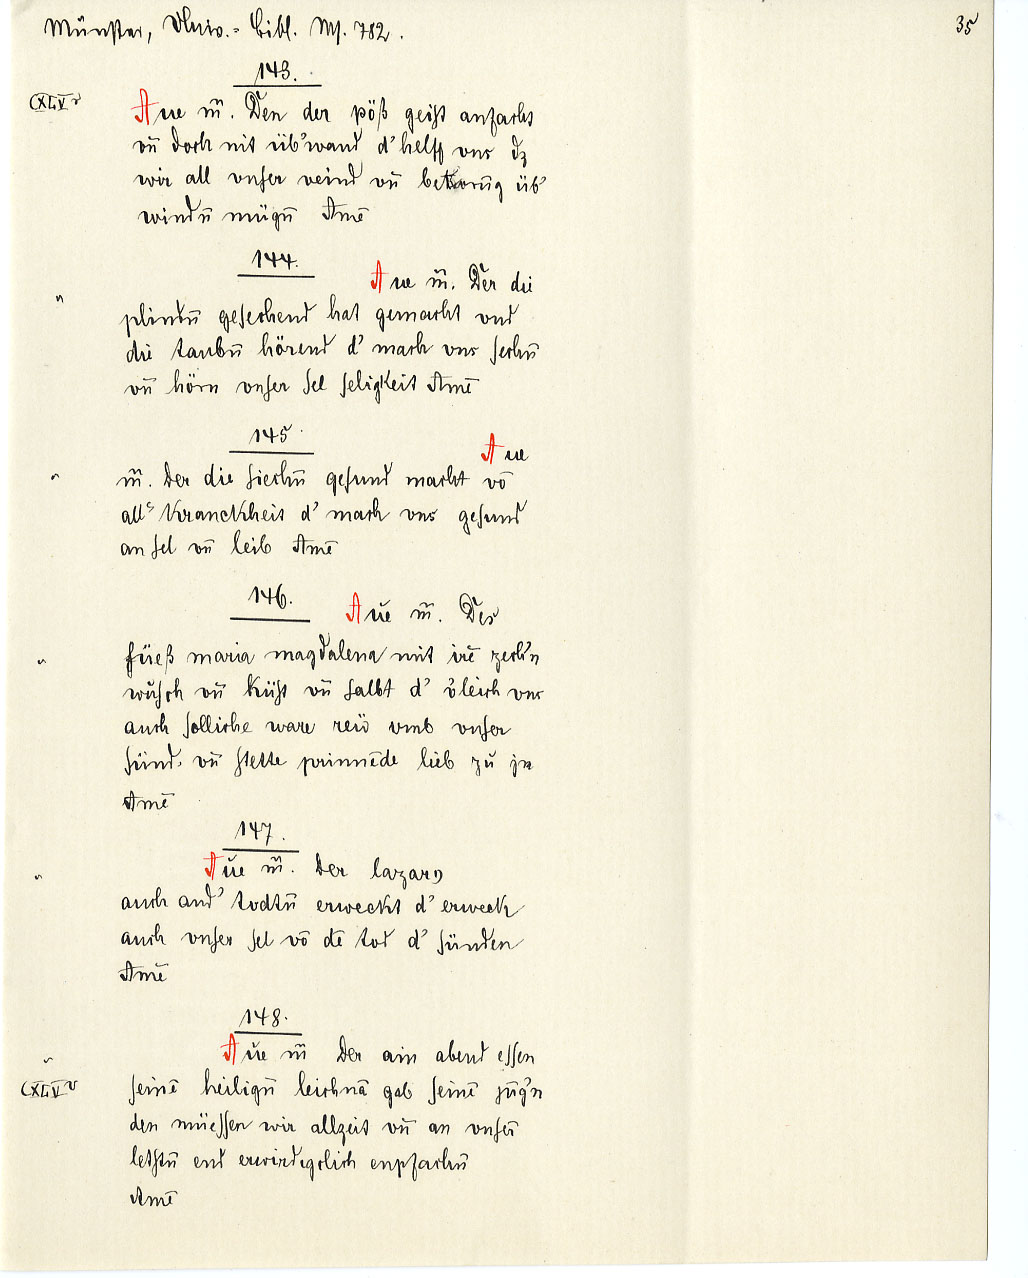 Münster, Univ.-Bibl. Ms. 782. 35
143.
CXLVr Aue m̄. Den der pöß geist anfacht
vn̄ doch nit üb’wand d’ helff vns dz
wir all vnser veind vn̄ bekorūg üb’
windn̄ mügn̄ Amē
144.
" Aue m̄. Der die
plindn̄ gesechend hat gemacht vnd
die taubn̄ hörend d’ mach vns sechn̄
vn̄ hörn vnser sel seligkeit Amē
145
Aue
" m̄. Der die siechn̄ gesund macht vō
all’ kranckheit d’ mach vns gesund
an sel vn̄ leib Amē
146.
Aue m̄. Des
" füeß maria magdalena mit irē zech’n
wusch vn̄ küst vn̄ salbt d’ v’leich vns
auch solliche ware reü vmb vnser
sünd. vn̄ stette prinnēde lieb zů jn
Amē
147.
Aue m̄. Der lazarꝰ
" auch and’ todtn̄ erweckt d’ erweck
auch vnser sel vō dē tod d’ sünden
Amē
148.
" Aue m̄ Der ain abend essen
CXLVv seinē heilign̄ leichnā gab seinē jūg’n
den müessen wir allzeit vn̄ an vnserē
letstn̄ end erwirdigclich enpfachn̄
Amē